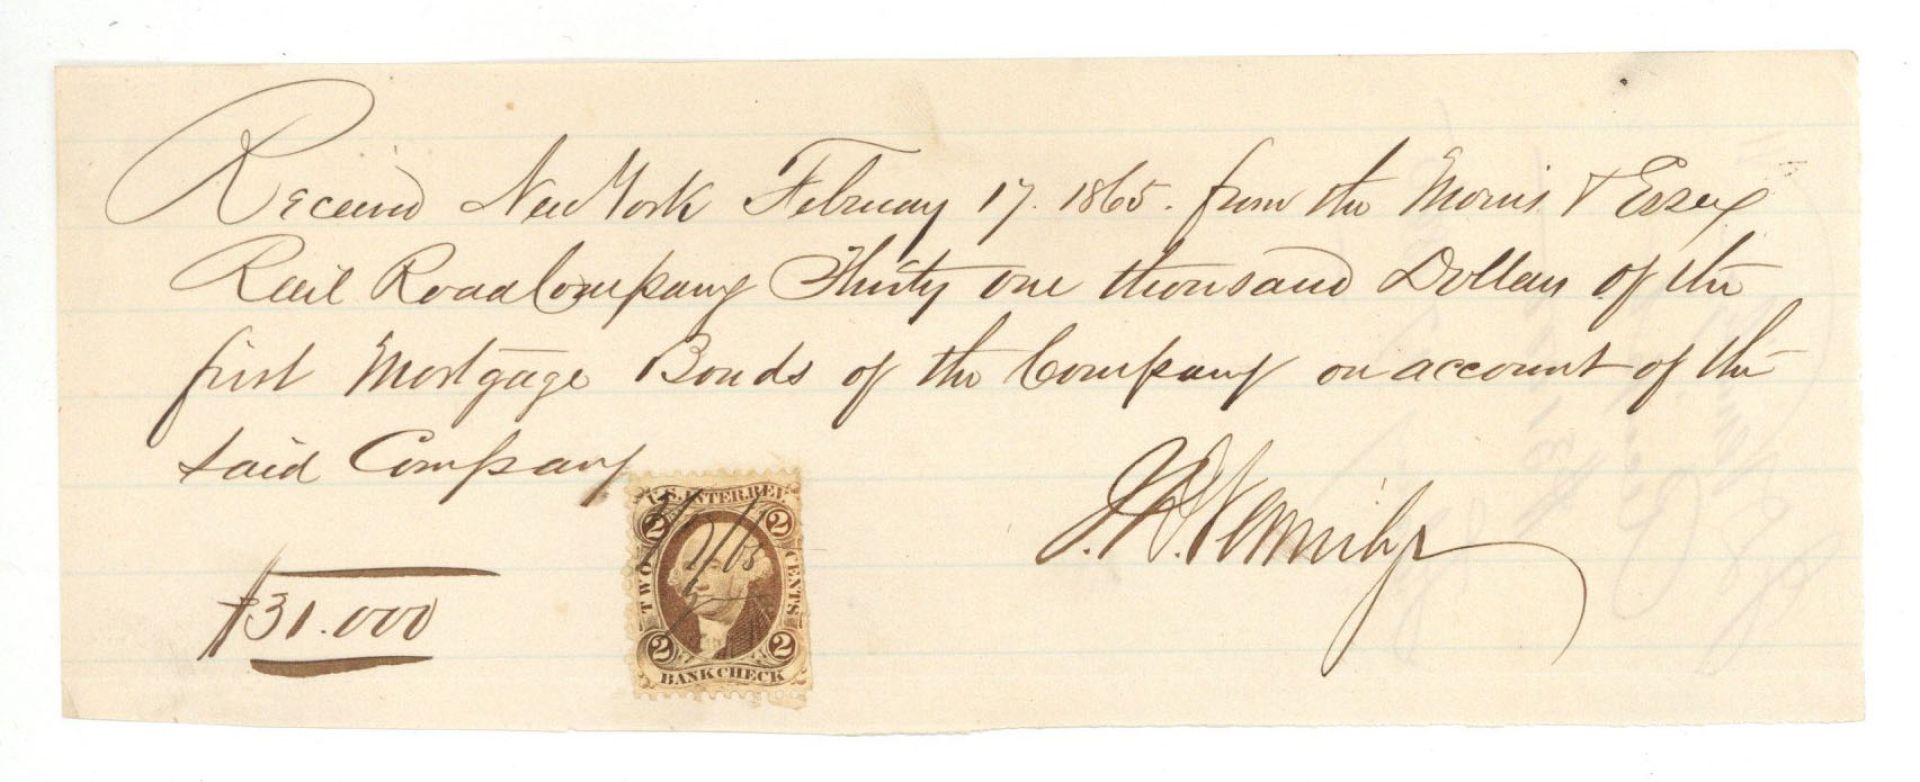 Received New York February 17. 1865. from the Morris & Essex
Rail Road Company Thirty one thousand Dollars of the
first Mortgage Bonds of the Company on account of the
said Company
J. D. Vermilye
$31.000
U.S. INTER. REV.
2 2
TWO CENTS
2 2
BANK CHECK